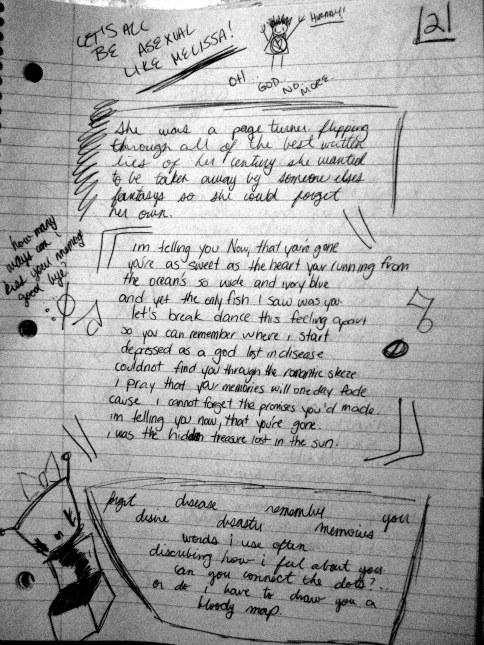 LET'S ALL
BE ASEXUAL
LIKE MELISSA!
HURRAY!
OH! GOD NO MORE
|2|
She was a page turner flipping
through all of the best written
lies of her century she wanted
to be taken away by someone elses
fantasys so she could forget
her own.
how many
ways can i
kiss your morning
good bye?
im telling you. Now, that your gone
you're as sweet as the heart your running from
the ocean's so wide and ivory blue
and yet the only fish I saw was you.
let's break dance this feeling apart
so you can remember where i start
depressed as a god lost in disease
couldnot find you through the romantic sleeze
I pray that your memories will one day fade
cause I cannot forget the promises you'd made
im telling you now, that you're gone.
i was the hidden treasure lost in the sun.
forget disease remember you
desire disaster memories
words i use often
discribing how i feel about you
can you connect the dots?...
or do i have to draw you a
bloody map.